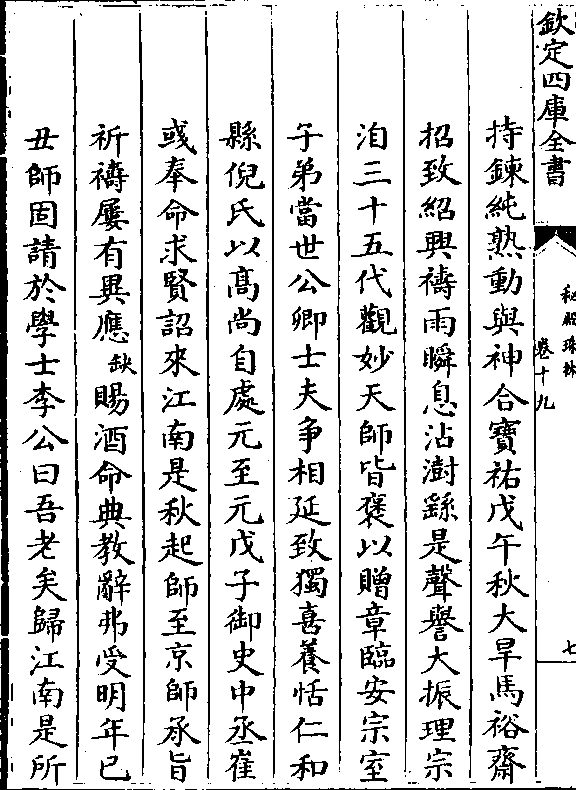 欽定四庫全書
秘殿珠林
卷十九
七
持鍊純熟動與神合寶祐戊午秋大旱馬裕齋
招致紹興禱雨瞬息沾澍繇是聲譽大振理宗
洎三十五代觀妙天師皆褒以贈章臨安宗室
子弟當世公卿士夫爭相延致獨喜養恬仁和
縣倪氏以高尚自處元至元戊子御史中丞崔
彧奉命求賢詔來江南是秋起師至京師承旨
祈禱屢有異應缺賜酒命典教辭弗受明年已
丑師固請於學士李公曰吾老矣歸江南是所